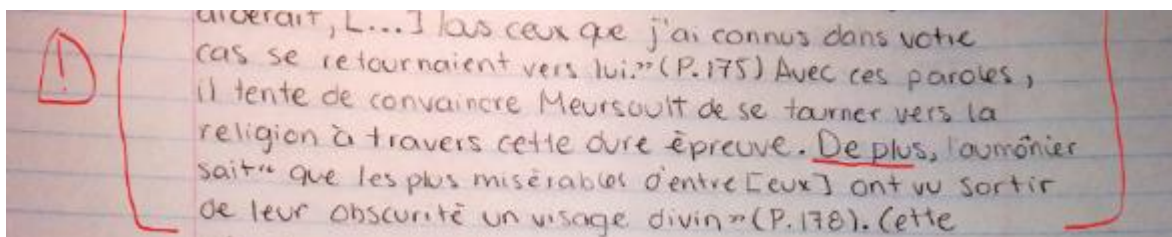 aiderait, [...] tous ceux que j'ai connus dans votre
cas se retournaient vers lui." (P.175) Avec ces paroles,
il tente de convaincre Meursault de se tourner vers la
religion à travers cette dure épreuve. De plus, l'aumônier
sait "que les plus misérables d'entre [eux] ont vu sortir
de leur obscurité un visage divin" (P.178). Cette